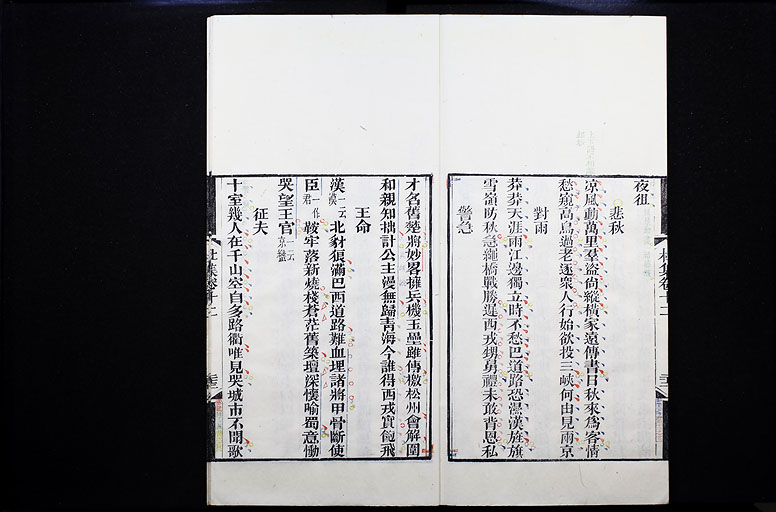 夜徂
悲秋
凉風動萬里羣盜尚縱橫家遠傳書日秋來爲客情
愁窺高鳥過老逐衆人行始欲投三峽何由見兩京
對雨
莽莽天涯雨江邊獨立時不愁巴道路恐濕漢旌旗
雪嶺防秋急繩橋戰勝遲西戎甥舅禮未敢背恩私
警急
才名舊楚將妙畧擁兵機玉壘雖傳檄松州會解圍
和親知拙計公主漫無歸青海今誰得西戎實飽飛
王命
漢一云漠北豺狼滿巴西道路難血埋諸將甲骨斷使
臣一作君鞍牢落新燒棧蒼茫舊築壇深懷喻蜀意慟
哭望王官一云京巒
征夫
十室幾人在千山空自多路衢唯見哭城市不聞歌
杜集卷十二